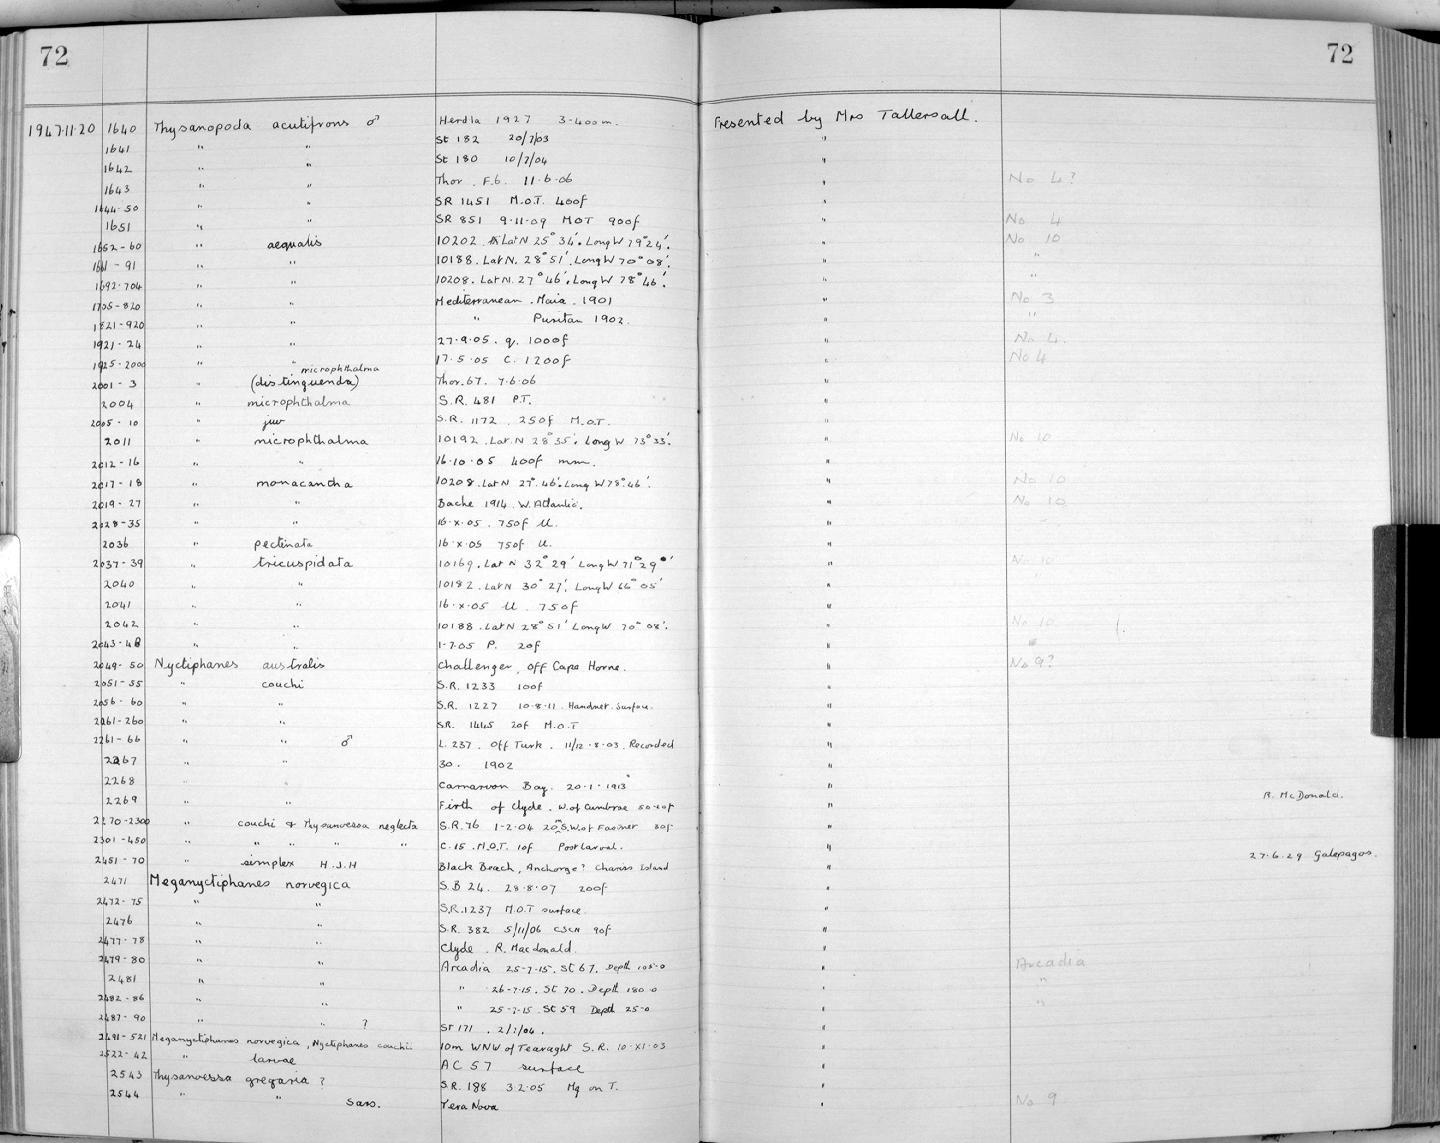 72 72
1947.11.20 1640 Thysanopoda acutifrons ♂ Herdla 1927 3-400m. Presented by Mrs Tattersall.
1641 " " St 182 20/7/03 "
1642 " " St 180 10/7/04 "
1643 " " Thor. F.6. 11.6.06 " No 4?
1644-50 " " SR 1451 M.O.T. 400f "
1651 " " SR 851 9.11.09 MOT 900f " No 4
1652-60 " aequalis 10202. Lat N 25° 34'. Long W 79° 24'. " No 10
1661-91 " " 10188. Lat N. 28° 51'. Long W 70° 08'. " "
1692.704 " " 10208. Lat N. 27° 46'. Long W 78° 46'. " "
1705-820 " " Mediterranean. Maia. 1901 " No 3
1821-920 " " " Puritan 1902. " "
1921-24 " " 27.9.05. q. 1000f " No 4.
1925-2000 " " 17.5.05 C. 1200f " No 4
microphthalma
2001-3 " (distinguenda) Thor. 67. 7.6.06 "
2004 " microphthalma S.R. 481 P.T. "
2005-10 " juv S.R. 1172. 250f M.O.T. "
2011 " microphthalma 10192. Lat. N 28° 35'. Long W 73° 33'. " No 10
2012-16 " " 16.10.05 400f mm. "
2017-18 " monacantha 10208. Lat N 27°. 46'. Long W 78°. 46'. " No 10
2019-27 " " Bache 1914. W. Atlantic. " No 10
2028-35 " " 16.x.05. 750f U. "
2036 " pectinata 16.x.05 750f U. "
2037-39 " tricuspidata 10169. Lat N 32° 29' Long W 71° 29' " No 10
2040 " " 10182. Lat N 30° 27'. Long W 66° 05' "
2041 " " 16.x.05 U. 750f "
2042 " " 10188. Lat N 28° 51' Long W 70° 08'. " No 10
2043-48 " " 1-7.05 P. 20f "
2049-50 Nyctiphanes australis Challenger, off Cape Horne. " No 9?
2051-55 " couchi S.R. 1233 100f "
2056-60 " " S.R. 1227 10.8.11. Handnet. surface. "
2061-260 " " SR. 1445 20f M.O.T "
2261-66 " " ♂ L. 237. Off Tusk. 11/12.8.03. Recorded "
2267 " " 30. 1902 "
2268 Carnarvon Bay. 20.1.1913 "
2269 " " Firth of Clyde. W. of Cumbrae 50-60f " R. McDonald.
2270-2300 " couchi & Thysanoessa neglecta S.R. 76 1-2.04 20m S.W. of Fastnet 80f "
2301-450 " " " " " C. 15. M.O.T. 10f Post larval. "
2451-70 " simplex H.J.H Black Beach, Anchorge? Charles Island " 27.6.29 Galapagos.
2471 Meganyctiphanes norvegica S.B 24. 28.8.07 200f "
2472-75 " " S.R. 1237 M.O.T surface. "
2476 " " S.R. 382 5/11/06 CSCN 90f "
2477-78 " " Clyde. R. Macdonald. "
2479-80 " " Arcadia 25-7-15. St 67. Depth 105-0 " Arcadia
2481 " " " 26-7-15. St 70. Depth 180-0 " "
2482-86 " " " 25-7-15. St 59 Depth 25-0 " "
2487-90 " " ? St 171. 2/7/04. "
2491-521 Meganyctiphanes norvegica, Nyctiphanes couchii 10m WNW of Tearaght S.R. 10.XI.03 "
2522-42 " larvae AC 57 surface "
2543 Thysanoessa gregaria? S.R. 188 3.2.05 Mq on T. "
2544 " " Sars. Tera Nova " No 9